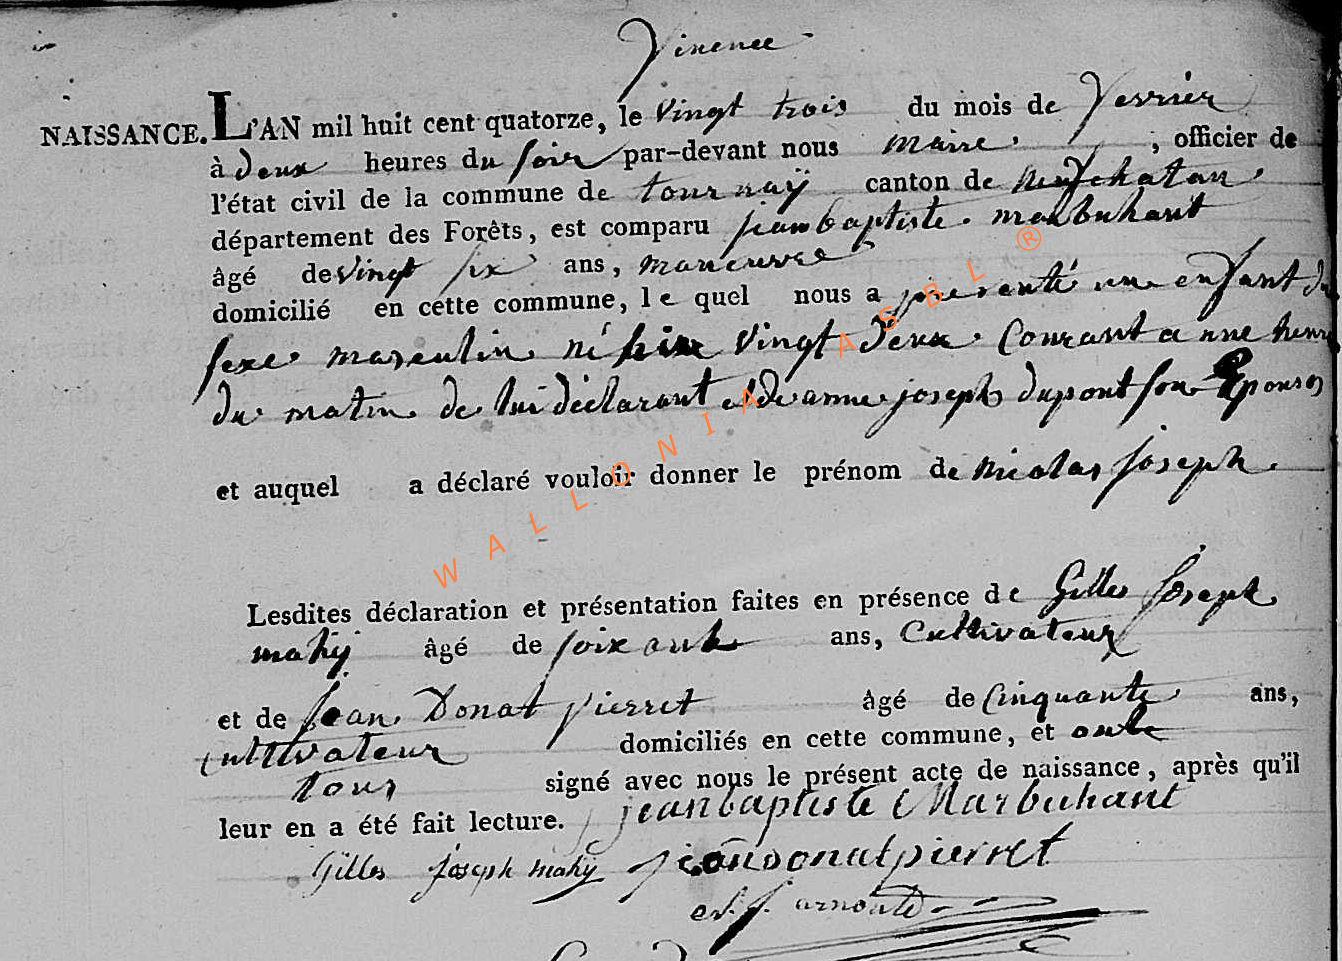 Vinence
NAISSANCE. L'AN mil huit cent quatorze, le vingt trois du mois de fevrier
à deux heures du soir par-devant nous maire , officier de
l'état civil de la commune de tournaÿ canton de neufchatau
département des Forêts, est comparu jeanbaptiste marbuhant
âgé de vingt six ans, maneuvre
domicilié en cette commune, le quel nous a presenté un enfant du
sexe masculin né hier vingt deux courant a une heure
du matin de lui déclarant et de anne joseph dupont son Epouses
et auquel a déclaré vouloir donner le prénom de nicolas joseph
Lesdites déclaration et présentation faites en présence de Gilles Joseph
mahÿ âgé de soixante ans, Cultivateur
et de Jean Donat pierret âgé de Cinquante ans,
cultivateur domiciliés en cette commune, et onte
tous signé avec nous le présent acte de naissance, après qu'il
leur en a été fait lecture. jeanbaptiste Marbuhant
Gilles joseph mahÿ jeandonatpierret
arnould
WALLONIA ASBL ®